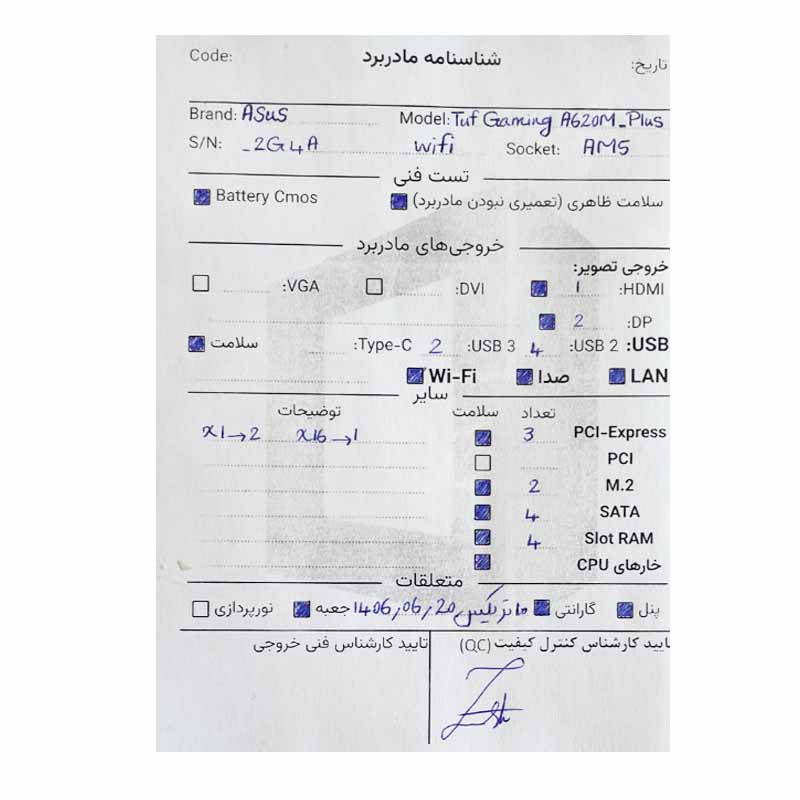 Code: شناسنامه مادربرد تاریخ:
Brand: ASUS Model: Tuf Gaming A620M_Plus
S/N: _2G4A wifi Socket: AM5
تست فنی
سلامت ظاهری (تعمیری نبودن مادربرد) Battery Cmos
خروجی‌های مادربرد
خروجی تصویر:
HDMI: 1 DVI: VGA:
DP: 2
USB: USB 2: 4 USB 3: 2 Type-C: سلامت
LAN صدا Wi-Fi
سایر
تعداد سلامت توضیحات
PCI-Express 3 x16→1 x1→2
PCI
M.2 2
SATA 4
Slot RAM 4
خارهای CPU
متعلقات
پنل گارانتی ماتریکس 1406,06,20 جعبه نورپردازی
تایید کارشناس کنترل کیفیت (QC) تایید کارشناس فنی خروجی